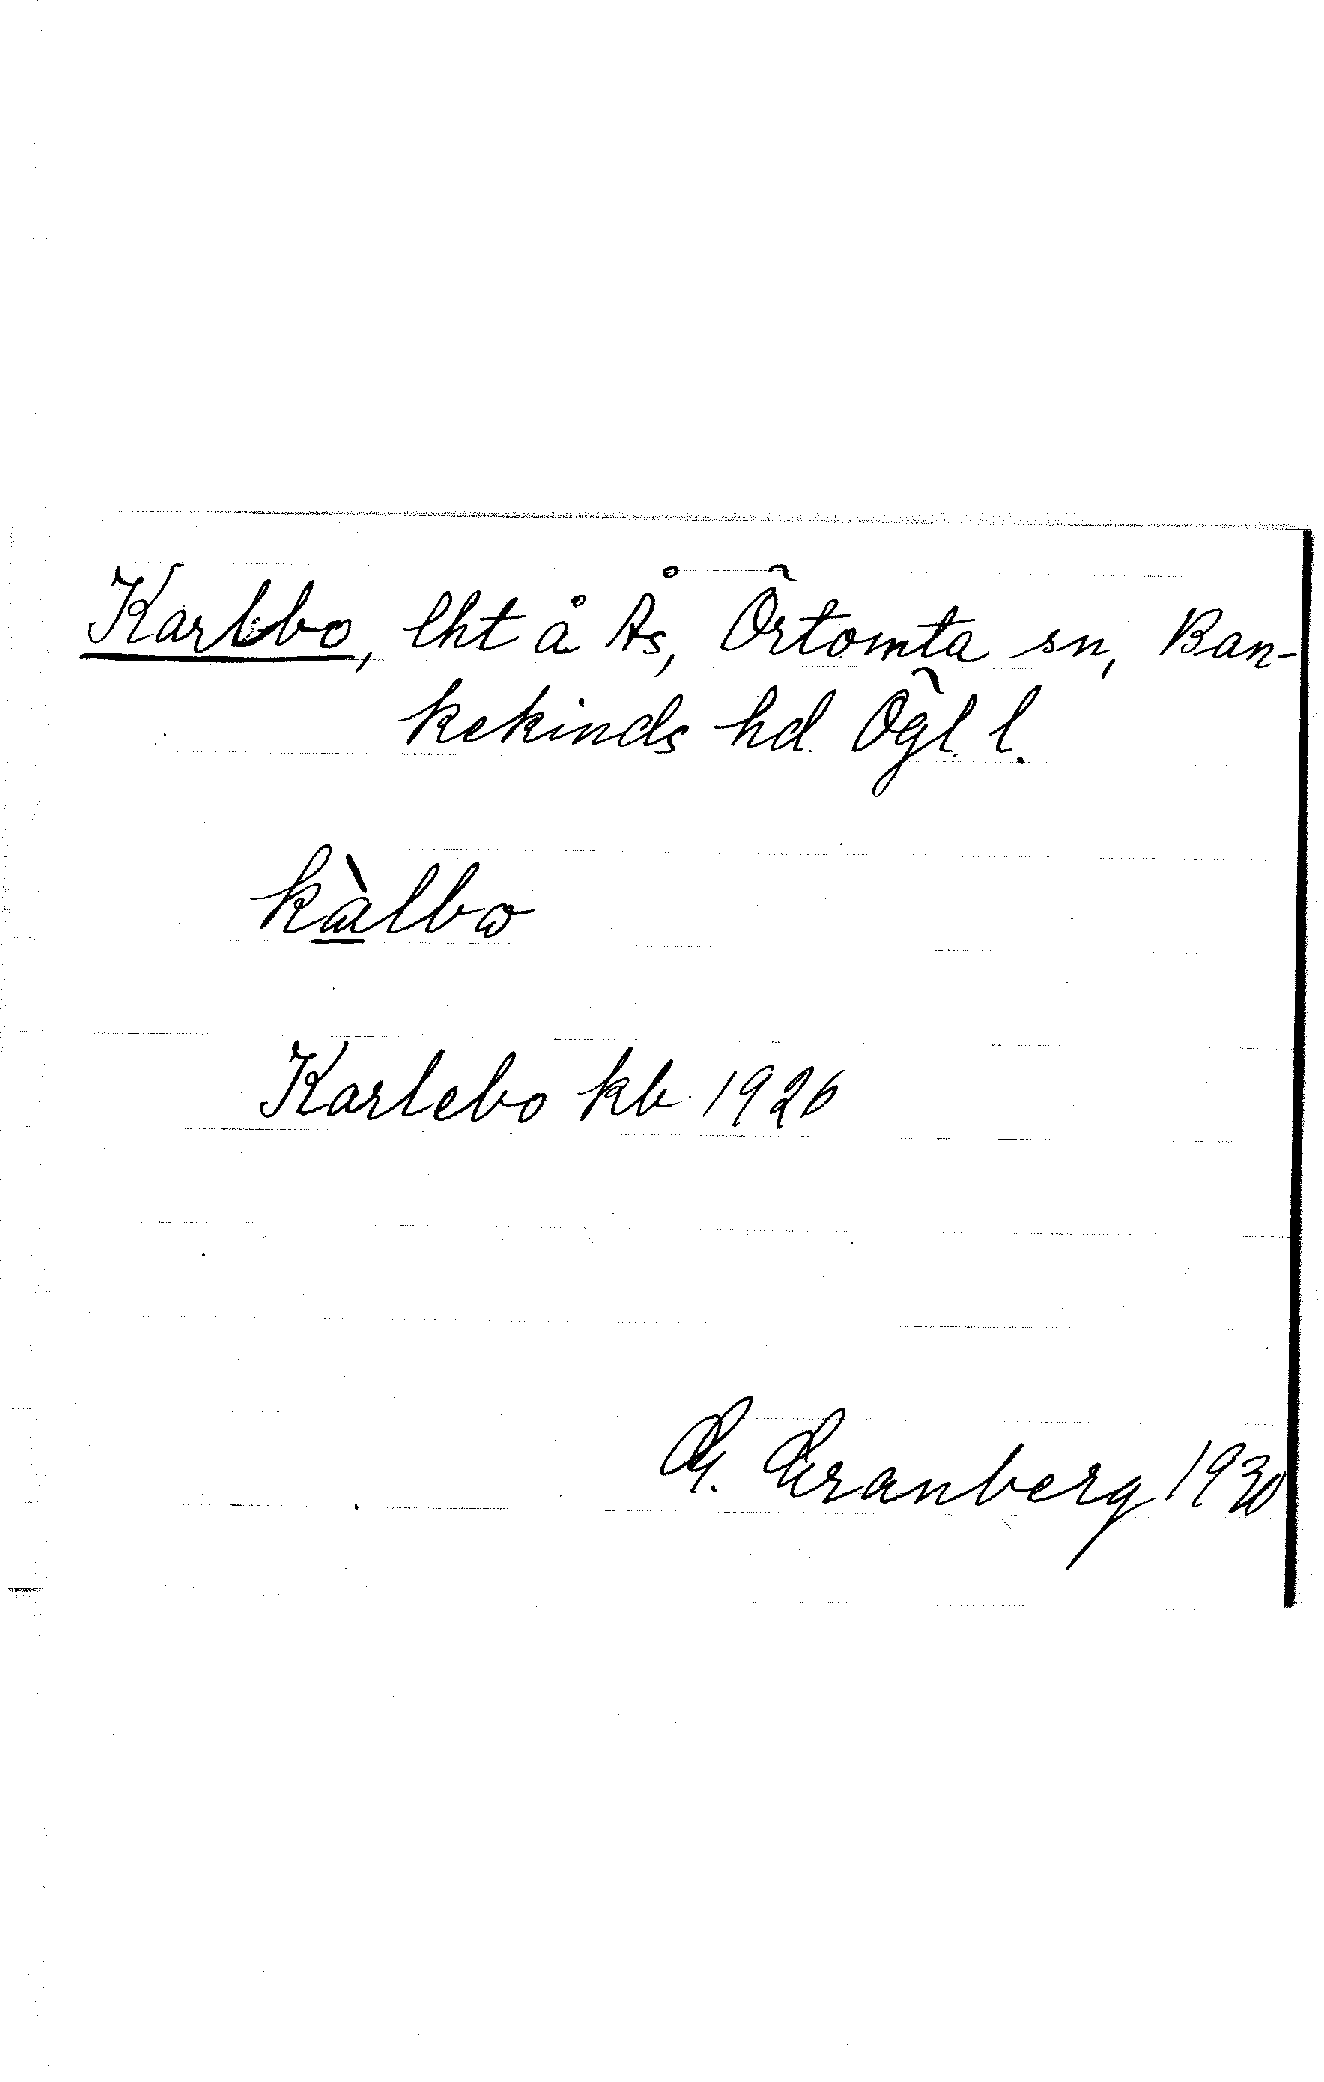 Karlbo, lht å Ås, Örtomta sn, Ban-
kekinds hd. Ögl. l.
kàlbɷ
Karlebo kb. 1926
G. Granberg 1930